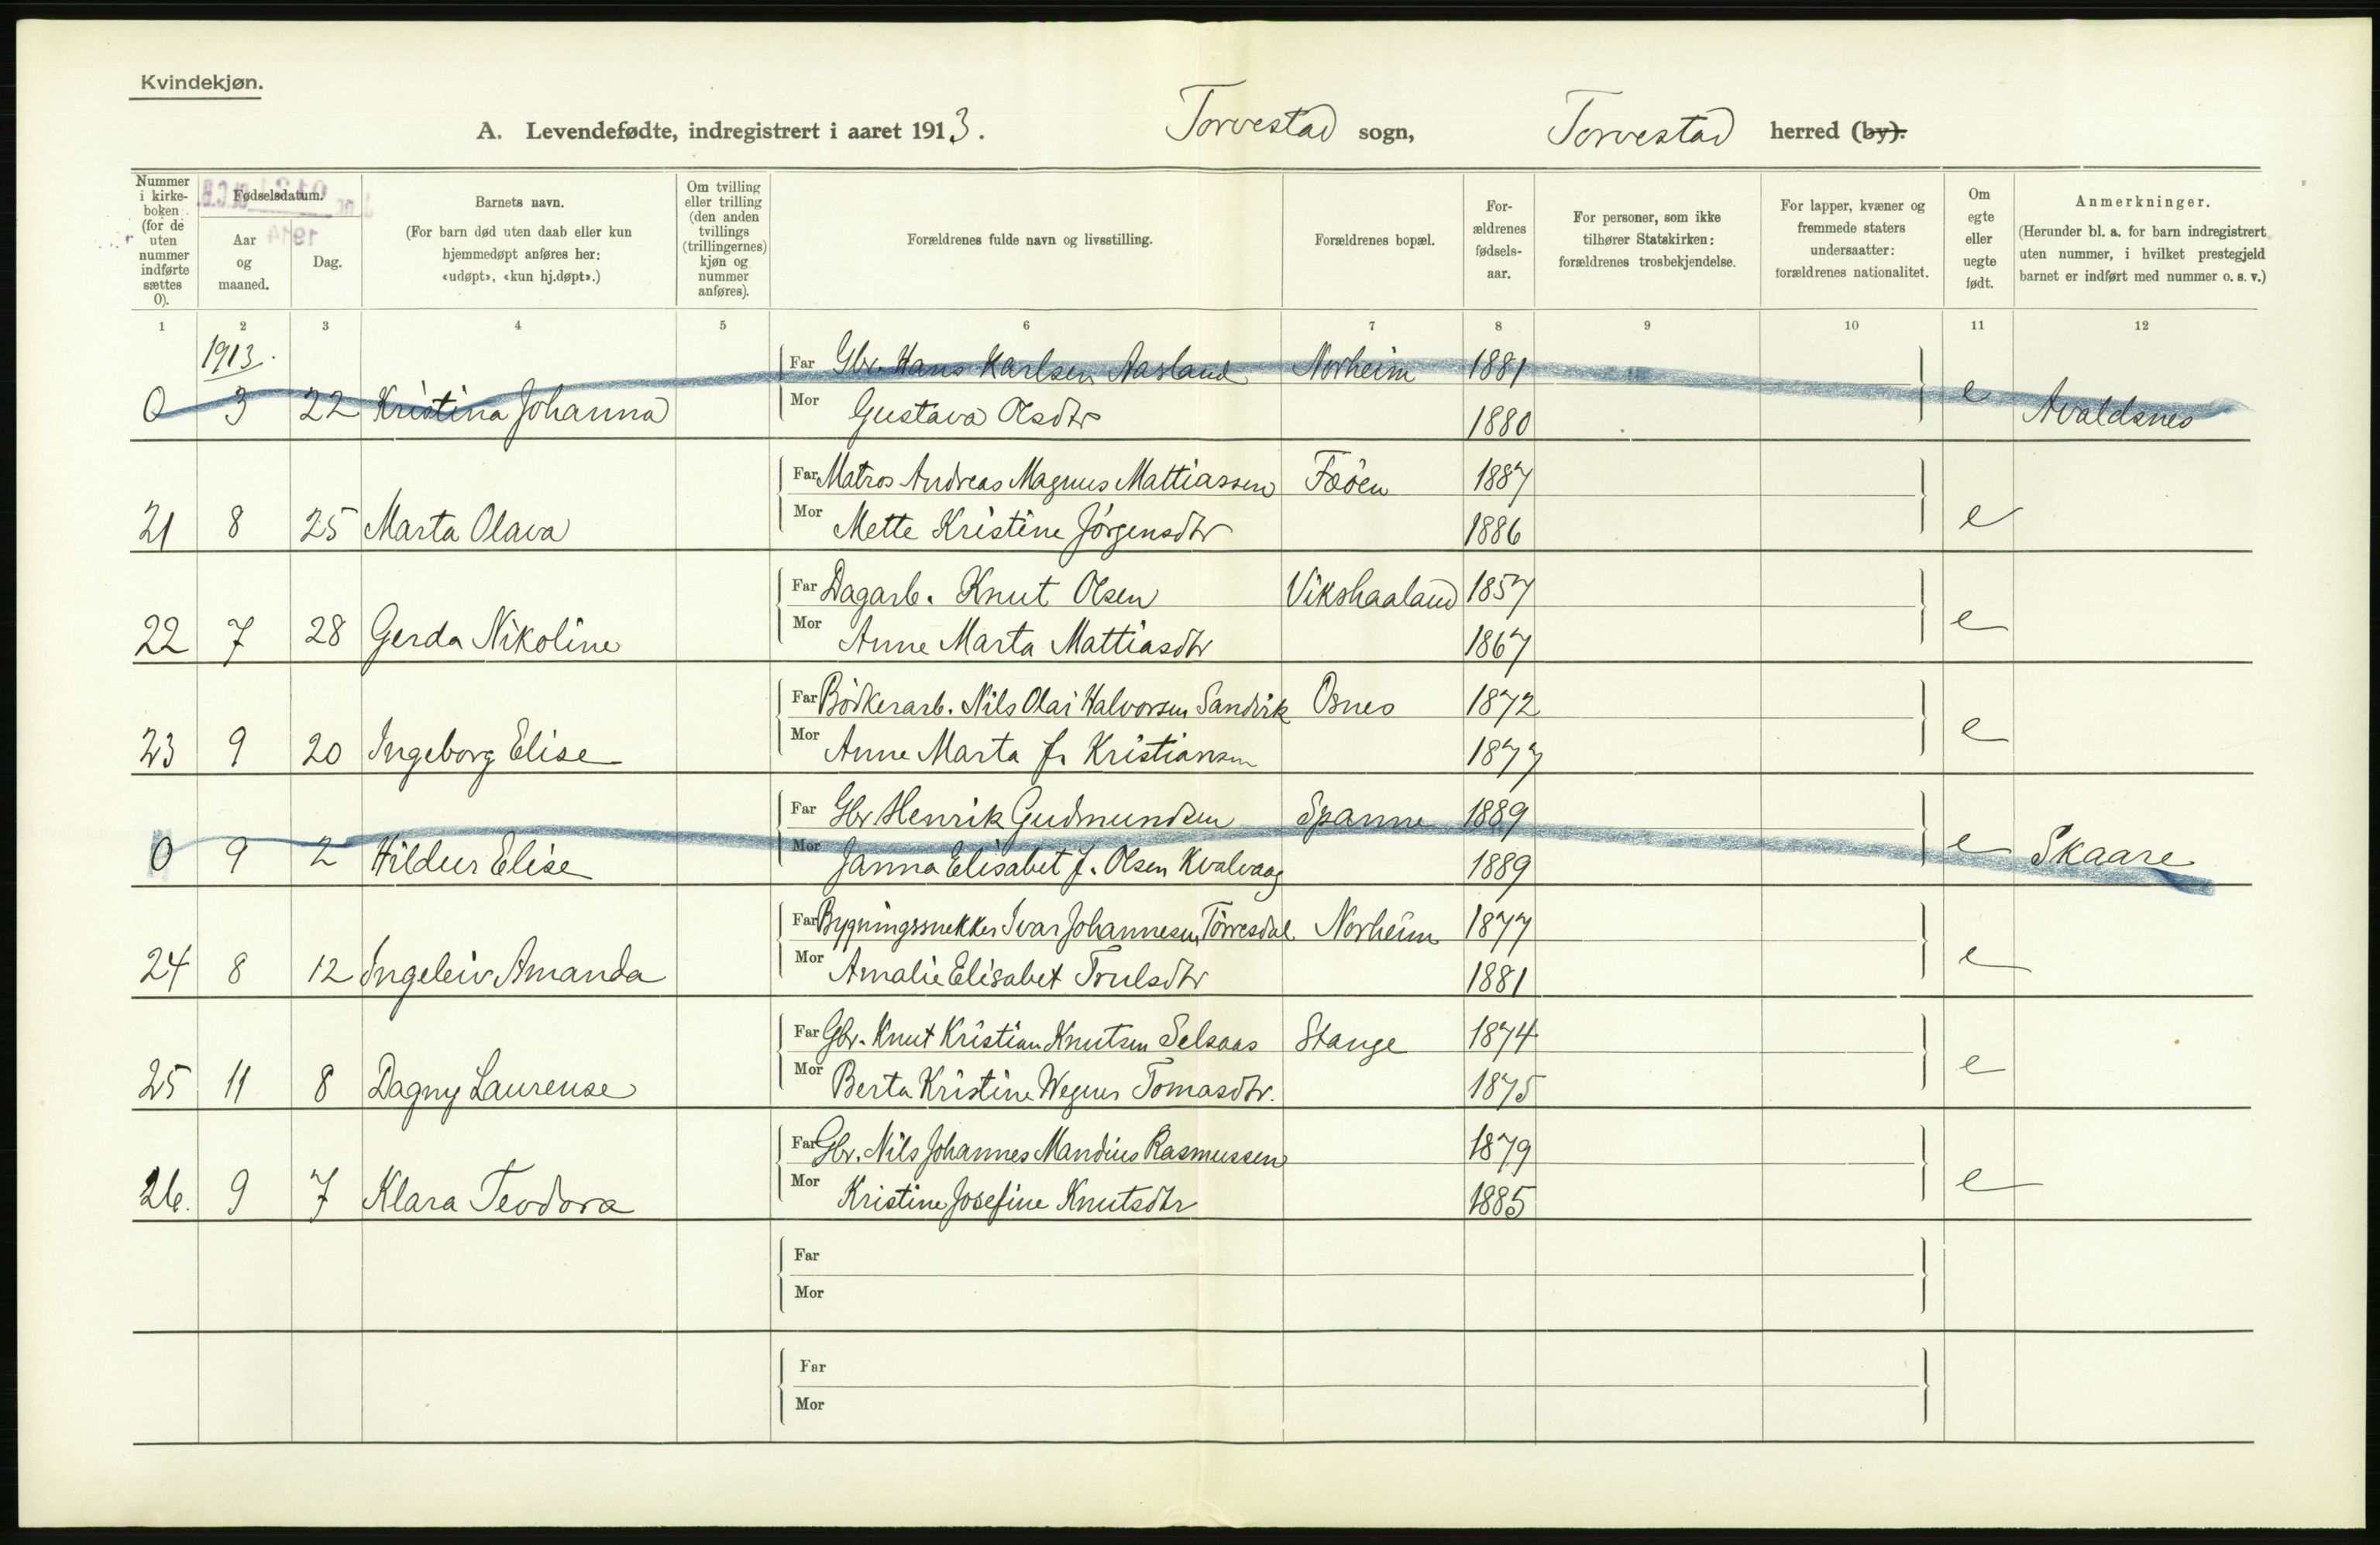 Kvindekjøn.
A. Levendefødte, indregistrert i aaret 1913. Torvestad sogn, Torvestad herred (by).
Nummer i kirke-boken (for de uten nummer indførte sættes 0).
Fødselsdatum.
Aar og maaned.
Dag.
Barnets navn.
(For barn død uten daab eller kun hjemmedøpt anføres her: «udøpt», «kun hj.døpt».)
Om tvilling eller trilling (den anden tvillings (trillingernes) kjøn og nummer anføres).
Forældrenes fulde navn og livsstilling.
Forældrenes bopæl.
For-ældrenes fødsels-aar.
For personer, som ikke tilhører Statskirken: forældrenes trosbekjendelse.
For lapper, kvæner og fremmede staters undersaatter: forældrenes nationalitet.
Om egte eller uegte født.
Anmerkninger.
(Herunder bl. a. for barn indregistrert uten nummer, i hvilket prestegjeld barnet er indført med nummer o. s. v.)
1 2 3 4 5 6 7 8 9 10 11 12
1913.
Far Gbr. Hans Karlsen Aasland Norheim 1881
0 3 22 Kristina Johanna Mor Gustava Olsdtr 1880 e Avaldsnes
Far Matros Andreas Magnus Mattiassen Føöen 1887
21 8 25 Marta Olava Mor Mette Kristine Jörgensdtr 1886 e
Far Dagarb. Knut Olsen Vikshaaland 1857
22 7 28 Gerda Nikoline Mor Anne Marta Mattiasdtr 1867 e
Far Bödkerarb. Nils Olai Halvorsen Sandvik Osnes 1872
23 9 20 Ingeborg Elise Mor Anne Marta f. Kristiansen 1877 e
Far Gbr Henrik Gudmundsen Spanne 1889
0 9 2 Hildur Elise Mor Janna Elisabet J. Olsen Kvalvaag 1889 e Skaare
Far Bygningssnekker Ivar Johannesen Törresdal Norheim 1877
24 8 12 Ingeleiv Amanda Mor Amalie Elisabet Trulsdtr 1881 e
Far Gbr. Knut Kristian Knutsen Selsaas Stange 1874
25 11 8 Dagny Laurense Mor Berta Kristine Wegner Tomasdtr. 1875 e
Far Gbr. Nils Johannes Mandius Rasmussen 1879
26. 9 7 Klara Teodora Mor Kristine Josefine Knutsdtr 1885 e
Far
Mor
Far
Mor